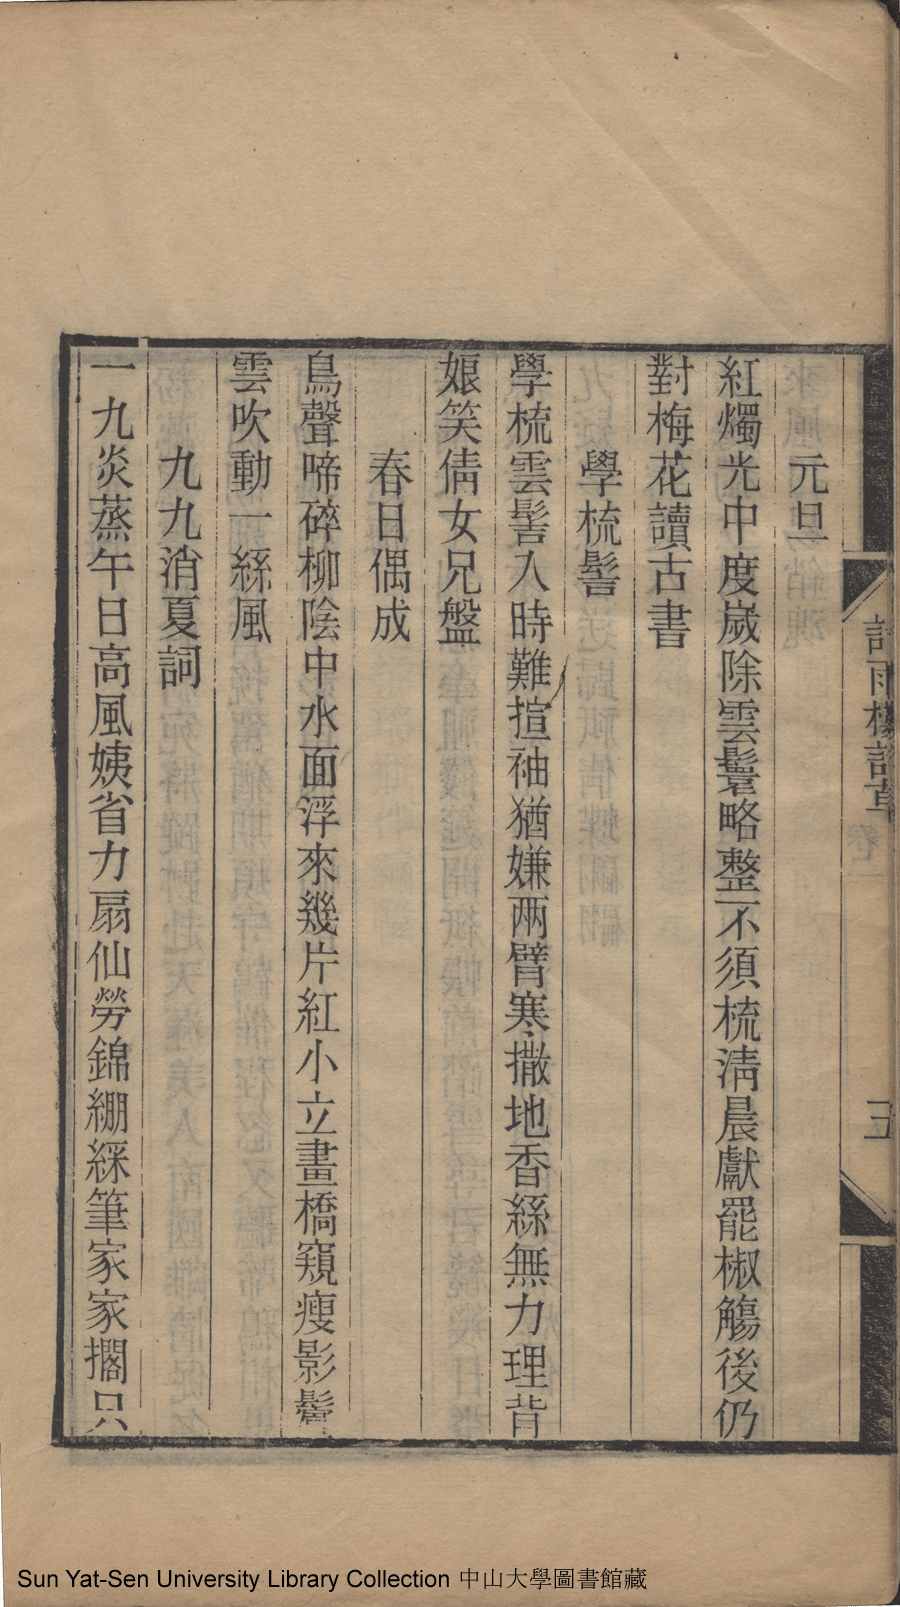 元旦
紅燭光中度嵗除雲鬟略整不須梳淸晨獻罷椒觴後仍
對梅花讀古書
學梳髻
學梳雲髻入時難揎袖猶嫌两臂寒撒地香絲無力理背
娘笑倩女兄盤
春日偶成
鳥聲啼碎柳陰中水面浮來幾片紅小立畫橋窺瘦影鬢
雲吹動一絲風
九九消夏詞
一九炎蒸午日高風姨省力扇仙勞錦綳綵筆家家擱只
雨樓詩草
卷一
五
Sun Yat-Sen University Library Collection 中山大學圖書館藏